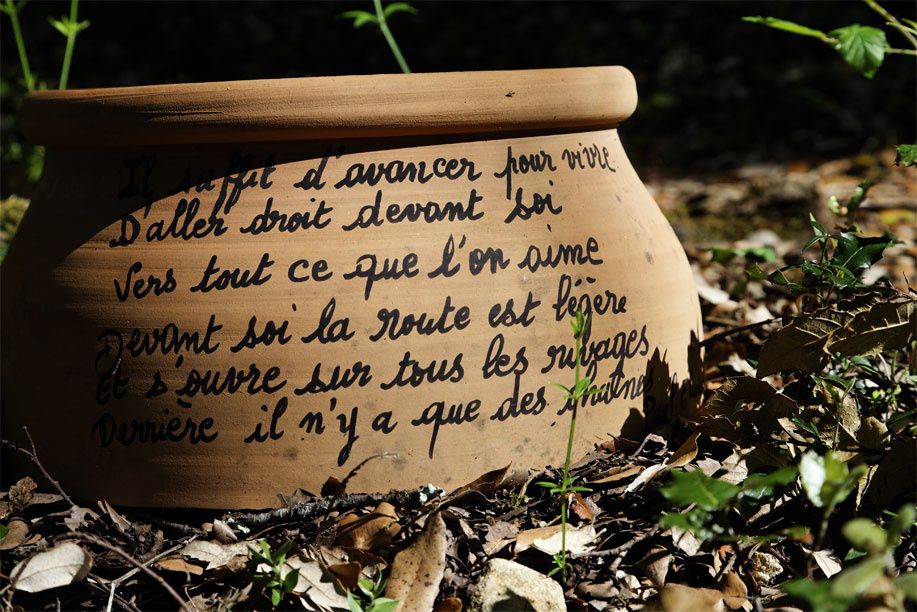 Il suffit d'avancer pour vivre
D'aller droit devant soi
Vers tout ce que l'on aime
Devant soi la route est légère
Et s'ouvre sur tous les rivages
Derrière il n'y a que des chaînes
Paul